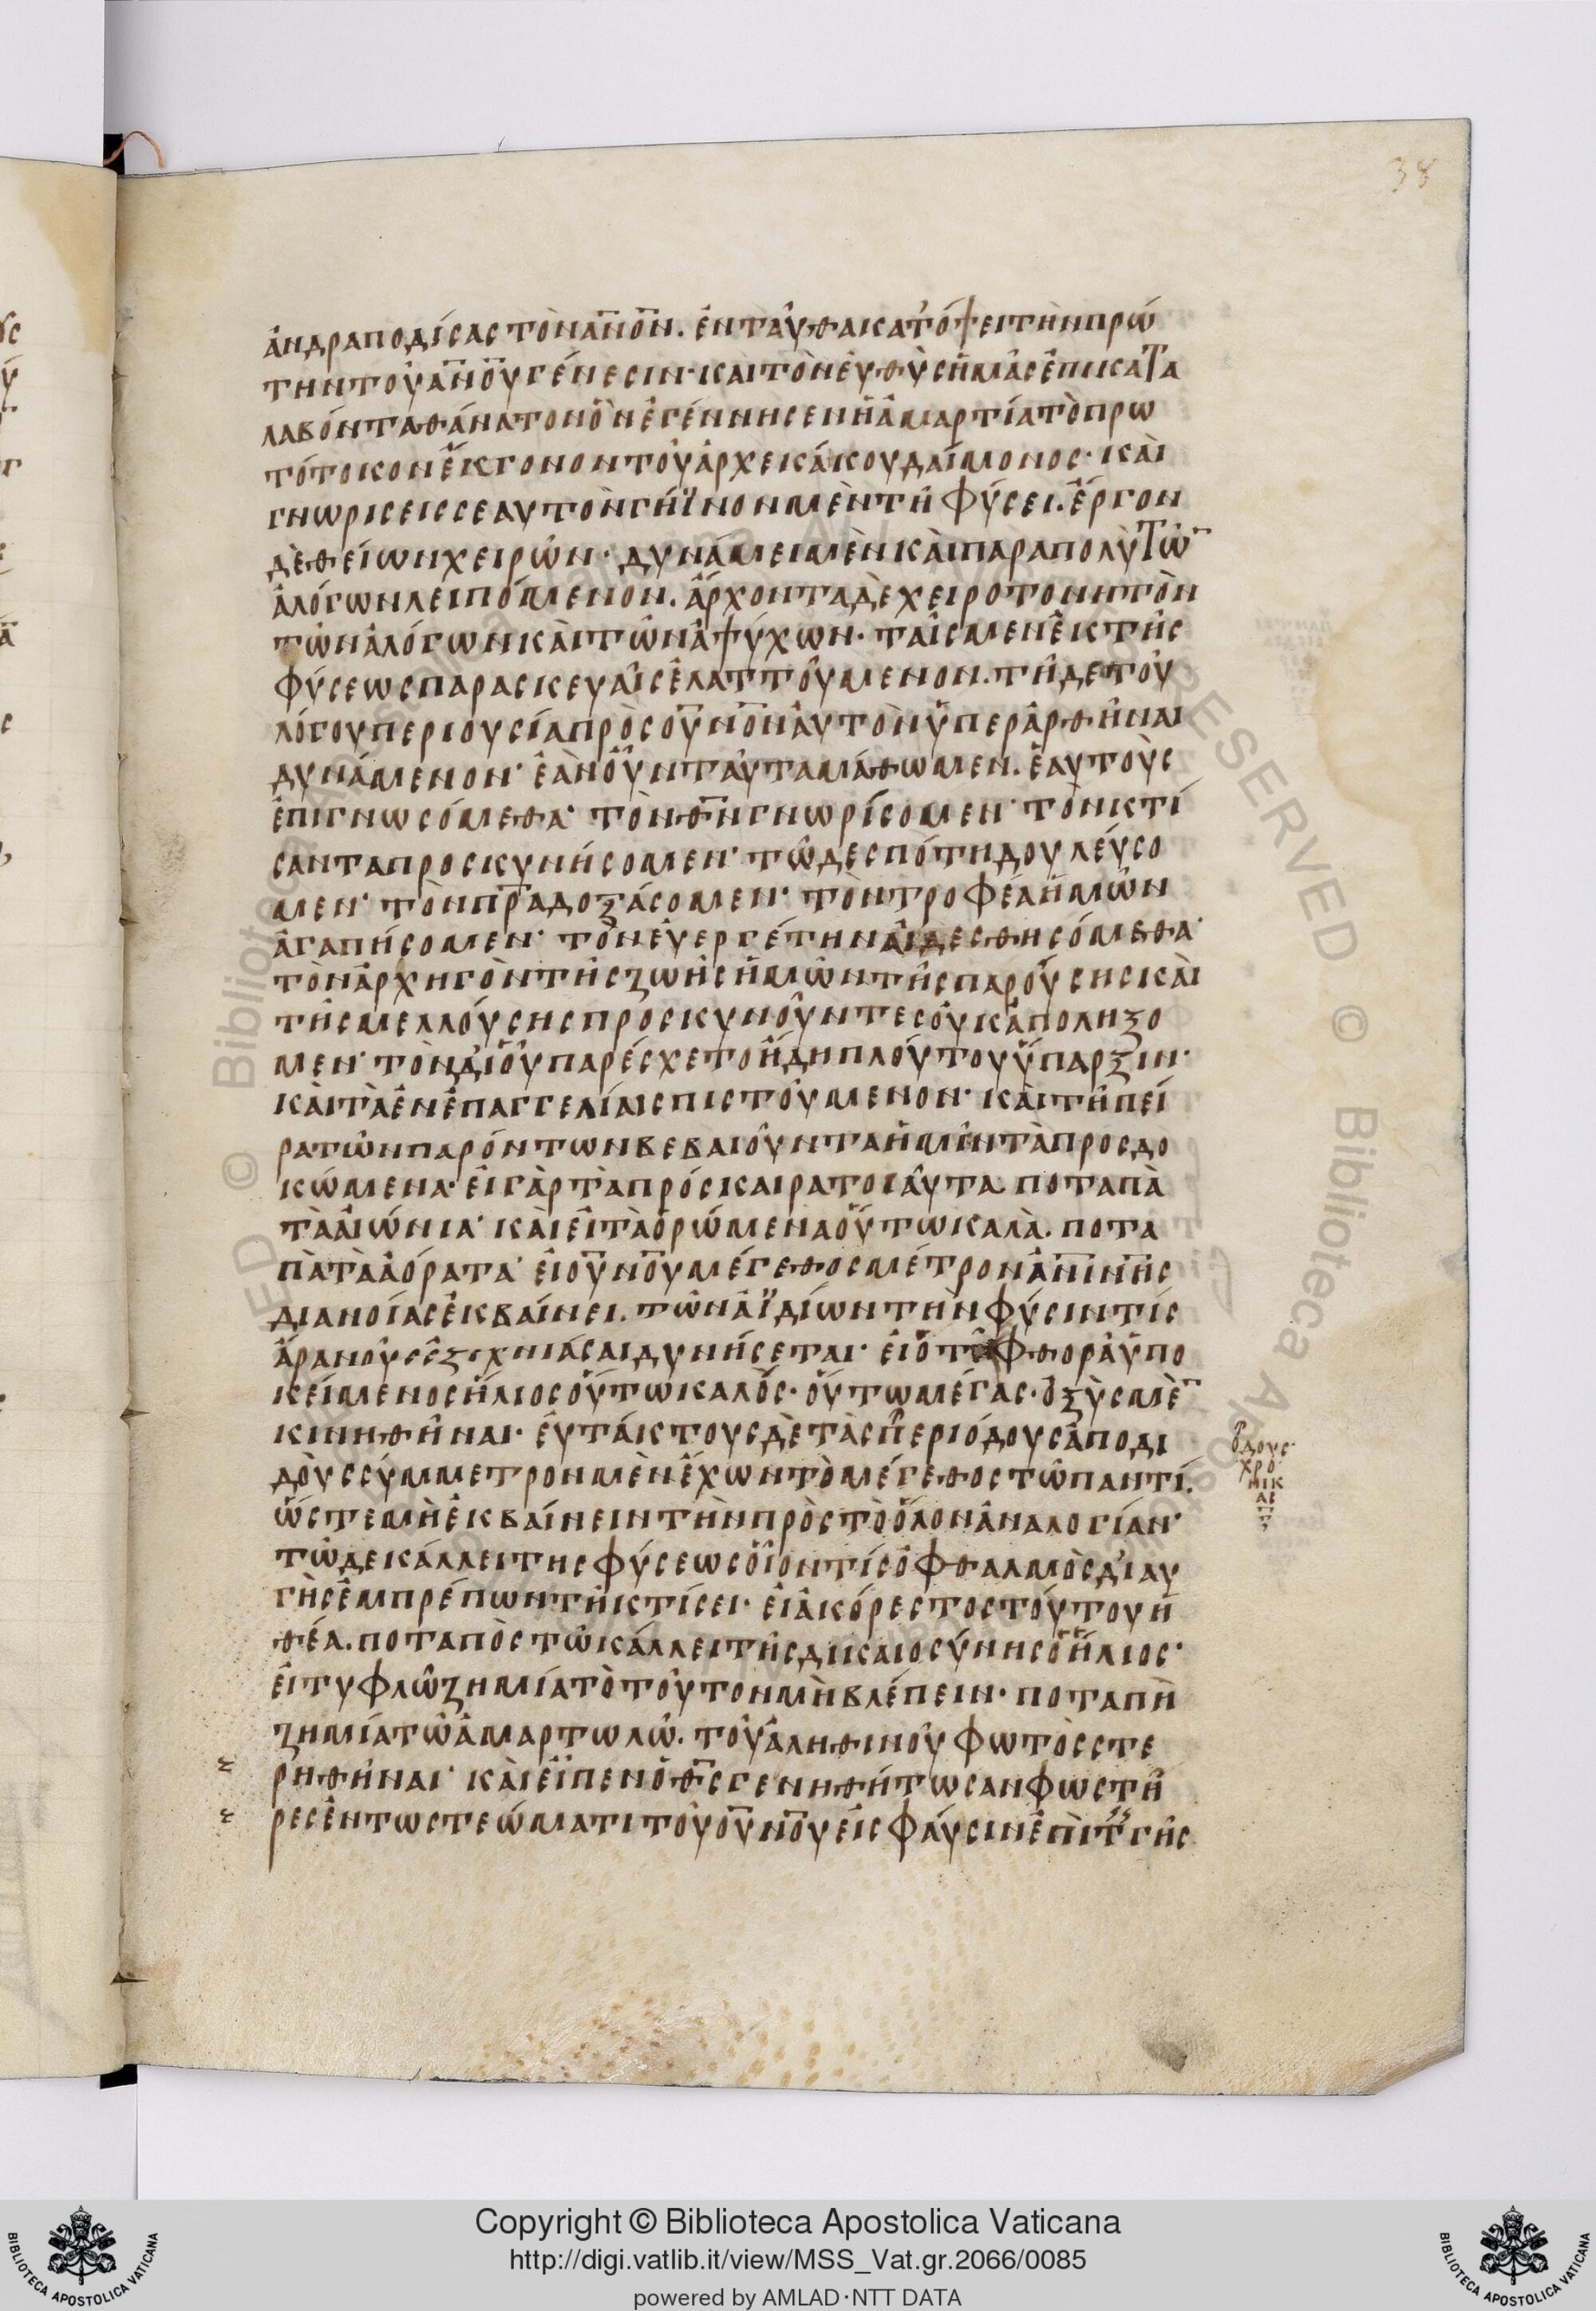 38
ἀνδραποδίσας τὸν ἀ̅ν̅ο̅ν. ἐνταῦθα κατόψει τὴν πρώ
την τοῦ ἀ̅ν̅ο̅υ γένεσιν· καὶ τὸν εὐθὺς ἡμᾶς ἐπικατα
λαβόντα θάνατον ὃν ἐγέννησεν ἡ ἁμαρτία τὸ πρω
τότοκον ἔκγονον τοῦ ἀρχεκάκου δαίμονος· καὶ
γνωρισεις σεαυτὸν γήϊνον μὲν τῇ φύσει. ἔργον
δὲ θείων χειρῶν· δυνάμει μὲν καὶ παραπολὺ τῶ̅
ἀλόγων λειπόμενον. ἄρχοντα δὲ χειροτονητὸν
τῶν ἀλόγων καὶ τῶν ἀψύχων· ταῖς μεν ἐκ τῆς
φύσεως παρασκευαῖς ἐλαττούμενον. τῇ δε τοῦ
λόγου περιουσία πρὸς ο̅υ̅ν̅ο̅ν αὐτὸν ὑπεραρθῆναι
δυνάμενον· ἐὰν οὖν ταῦτα μάθωμεν. ἑαυτοὺς
ἐπιγνωσόμεθα· τὸν θ̅ν γνωρίσομεν· τὸν κτί
σαντα προσκυνήσομεν· τῶ δεσπότη δουλεύσο
μεν· τὸν π̅ρ̅α δοξάσομεν· τὸν τροφέα ἡμῶν
ἀγαπήσομεν· τὸν εὐεργέτην αἰδεσθησόμεθα·
τὸν ἀρχηγὸν τῆς ζωῆς ἡμῶν τῆς παρούσης καὶ
τῆς μελλούσης προσκυνοῦντες οὐκ ἀποληξο
μεν· τὸν δι' οὗ παρέσχετο ἤδη πλούτου ὕπαρξιν·
καὶ τὰ ἐν ἐπαγγελίαις πιστούμενον· καὶ τῇ πεί
ρα τῶν παρόντων βεβαιοῦντα ἡμῖν τὰ προσδο
κώμενα· εἰ γὰρ τὰ πρόσκαιρα τοιαῦτα ποταπὰ
τὰ αἰώνια· καὶ εἰ τὰ ὁρώμενα οὕτω καλὰ. ποτα
πὰ τὰ ἀόρατα· εἰ ο̅υ̅ν̅ο̅υ μέγεθος μέτρον ἀ̅ν̅ι̅ν̅ης
διανοίας ἐκβαίνει. τῶν ἀϊδίων τὴν φύσιν τίς
ἄρα νοῦς ἐξιχνιάσαι δυνήσεται· εἰ ὁ τῇ φθορᾷ ὑπο
κείμενος ἥλιος οὕτω καλὸς· οὕτω μέγας· ὀξὺς μὲ̅
κινηθῆναι· εὐτάκτους δὲ τὰς περιόδους ἀποδι
δοὺς σύμμετρον μὲν ἔχων τὸ μέγεθος τῶ παντί.
ὥστε μὴ ἐκβαίνειν τὴν πρὸς τὸ ὅλον ἀναλογίαν·
τῶ δε κάλλει της φύσεως οἷόν τίς ὀφθαλμὸς διαυ
γὴς ἐμπρέπων τῇ κτίσει· εἰ ἀκόρεστος τούτου ἡ
θέα. ποταπὸς τῶ κάλλει τῆς δικαιοσύνης ὁ ἥλιος·
εἰ τυφλῶ ζημία τὸ τοῦτον μὴ βλέπειν· ποταπὴ
ζημία τῶ ἁμαρτωλῶ. τοῦ ἀληθινοῦ φωτὸς στε
ρηθῆναι· καὶ εἶπεν ὁ θ̅ς γενηθήτωσαν φωστῆ
ρες ἐν τω στεώματι τοῦ ο̅υ̅ν̅ο̅υ εἰς φαύσιν ἐπὶ τ̅ γῆς
Copyright © Biblioteca Apostolica Vaticana
http://digi.vatlib.it/view/MSS_Vat.gr.2066/0085
powered by AMLAD·NTT DATA
BIBLIOTECA APOSTOLICA VATICANA
BIBLIOTECA APOSTOLICA VATICANA